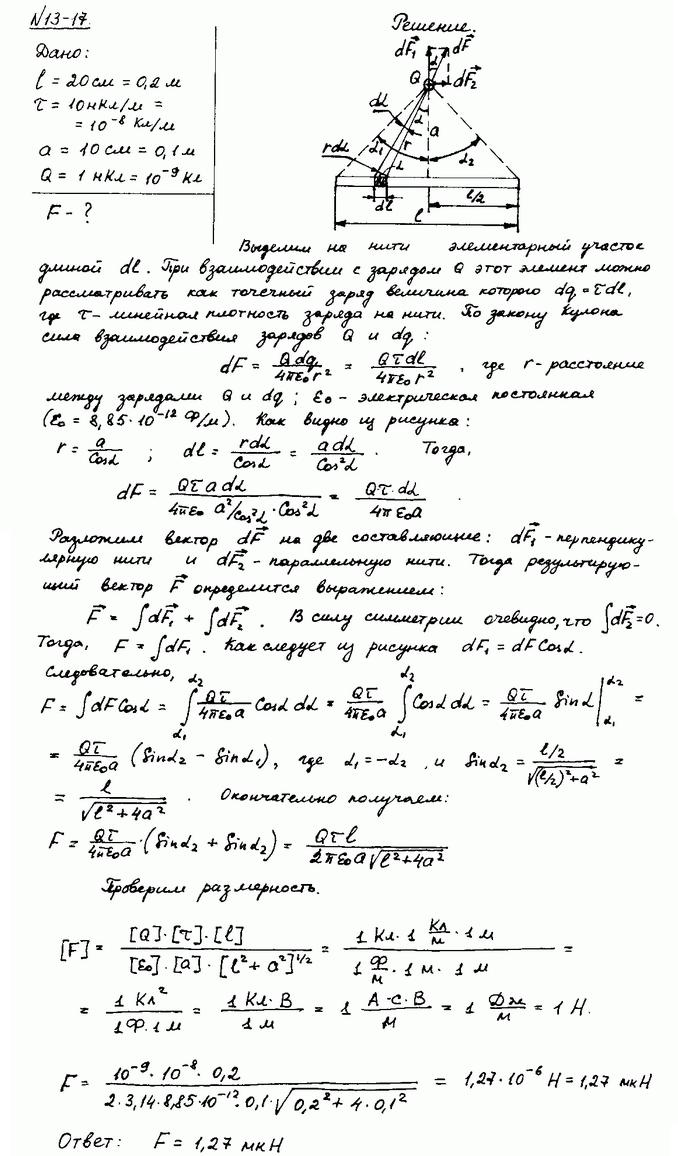 №13-17.
Дано:
l = 20см = 0,2 м
τ = 10нКл/м =
= 10⁻⁸ Кл/м
a = 10 см = 0,1 м
Q = 1 нКл = 10⁻⁹ Кл
F - ?
Решение.
dF⃗₁ dF⃗
α
Q dF⃗₂
dα α
a
α₁ r α₂
rdα α
l/2
dl
l
Выделим на нити элементарный участок
длиной dl. При взаимодействии с зарядом Q этот элемент можно
рассматривать как точечный заряд величина которого dq = τdl,
где τ - линейная плотность заряда на нити. По закону Кулона
сила взаимодействия зарядов Q и dq :
dF = Qdq/4πε₀r² = Qτdl/4πε₀r² , где r - расстояние
между зарядами Q и dq ; ε₀ - электрическая постоянная
(ε₀ = 8,85·10⁻¹² Ф/м). Как видно из рисунка :
r = a/Cosα ; dl = rdα/Cosα = adα/Cos²α . Тогда,
dF = Qτadα/(4πε₀ a²/cos²α · Cos²α) = Qτ·dα/4πε₀a .
Разложим вектор dF⃗ на две составляющие: dF⃗₁ - перпендику-
лярную нити и dF⃗₂ - параллельную нити. Тогда результирую-
щий вектор F⃗ определится выражением:
F⃗ = ∫dF⃗₁ + ∫dF⃗₂ . В силу симметрии очевидно, что ∫dF⃗₂=0.
Тогда, F = ∫dF₁ . Как следует из рисунка dF₁ = dFCosα.
Следовательно,
F = ∫dFCosα = ∫_α₁^α₂ Qτ/4πε₀a Cosα dα = Qτ/4πε₀a ∫_α₁^α₂ Cosα dα = Qτ/4πε₀a Sinα|_α₁^α₂ =
= Qτ/4πε₀a (Sinα₂ - Sinα₁), где α₁=-α₂ , и Sinα₂ = (l/2)/√((l/2)²+a²) =
= l/√(l²+4a²) . Окончательно получаем:
F = Qτ/4πε₀a ·(Sinα₂ + Sinα₂) = Qτl/2πε₀a√(l²+4a²)
Проверим размерность.
[F] = [Q]·[τ]·[l]/([ε₀]·[a]·[l²+a²]^1/2) = (1 Кл·1 Кл/м·1 м)/(1 Ф/м·1 м·1 м) =
= 1 Кл²/(1Ф·1м) = 1 Кл·В/1 м = 1 А·с·В/м = 1 Дж/м = 1 Н.
F = 10⁻⁹·10⁻⁸·0,2/(2·3,14·8,85·10⁻¹²·0,1·√(0,2²+4·0,1²)) = 1,27·10⁻⁶ Н = 1,27 мкН
Ответ: F = 1,27 мкН